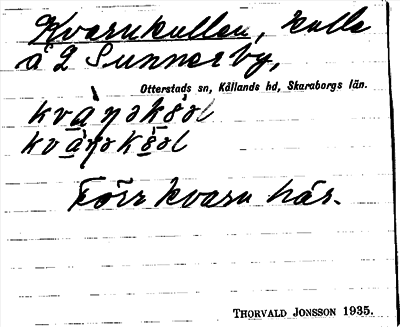 Kvarnkullen, kulle
å 2 Sunnerby,
Otterstads sn, Kållands hd, Skaraborgs län.
Förr kvarn här.
THORVALD JONSSON 1935.